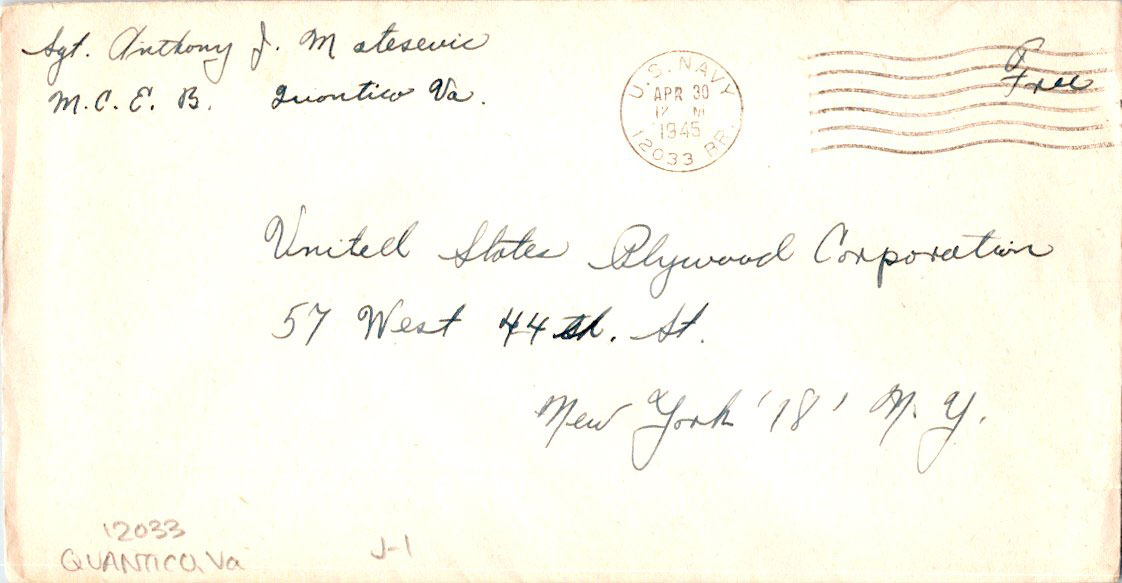 Sgt. Anthony J. Matesevic
M.C.E.B. Quantico Va.
U.S. NAVY
APR 30
12 M
1945
12033 BR.
Free
United States Plywood Corporation
57 West 44th. St.
New York '18' N.Y.
12033
QUANTICO, Va
J-1